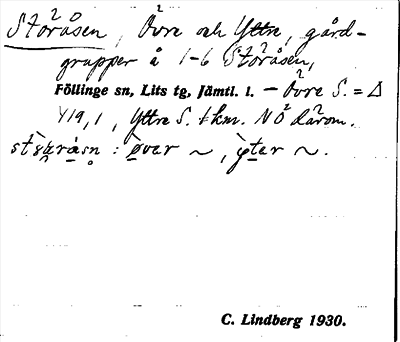 Storåsen, Övre och Yttre, gård-
grupper å 1-6 Storåsen,
Föllinge sn, Lits tg, Jämtl. l. – Övre S. = Δ
419,1, Yttre S. 1 km. NÖ därom.
: över ~, ytər ~.
C. Lindberg 1930.